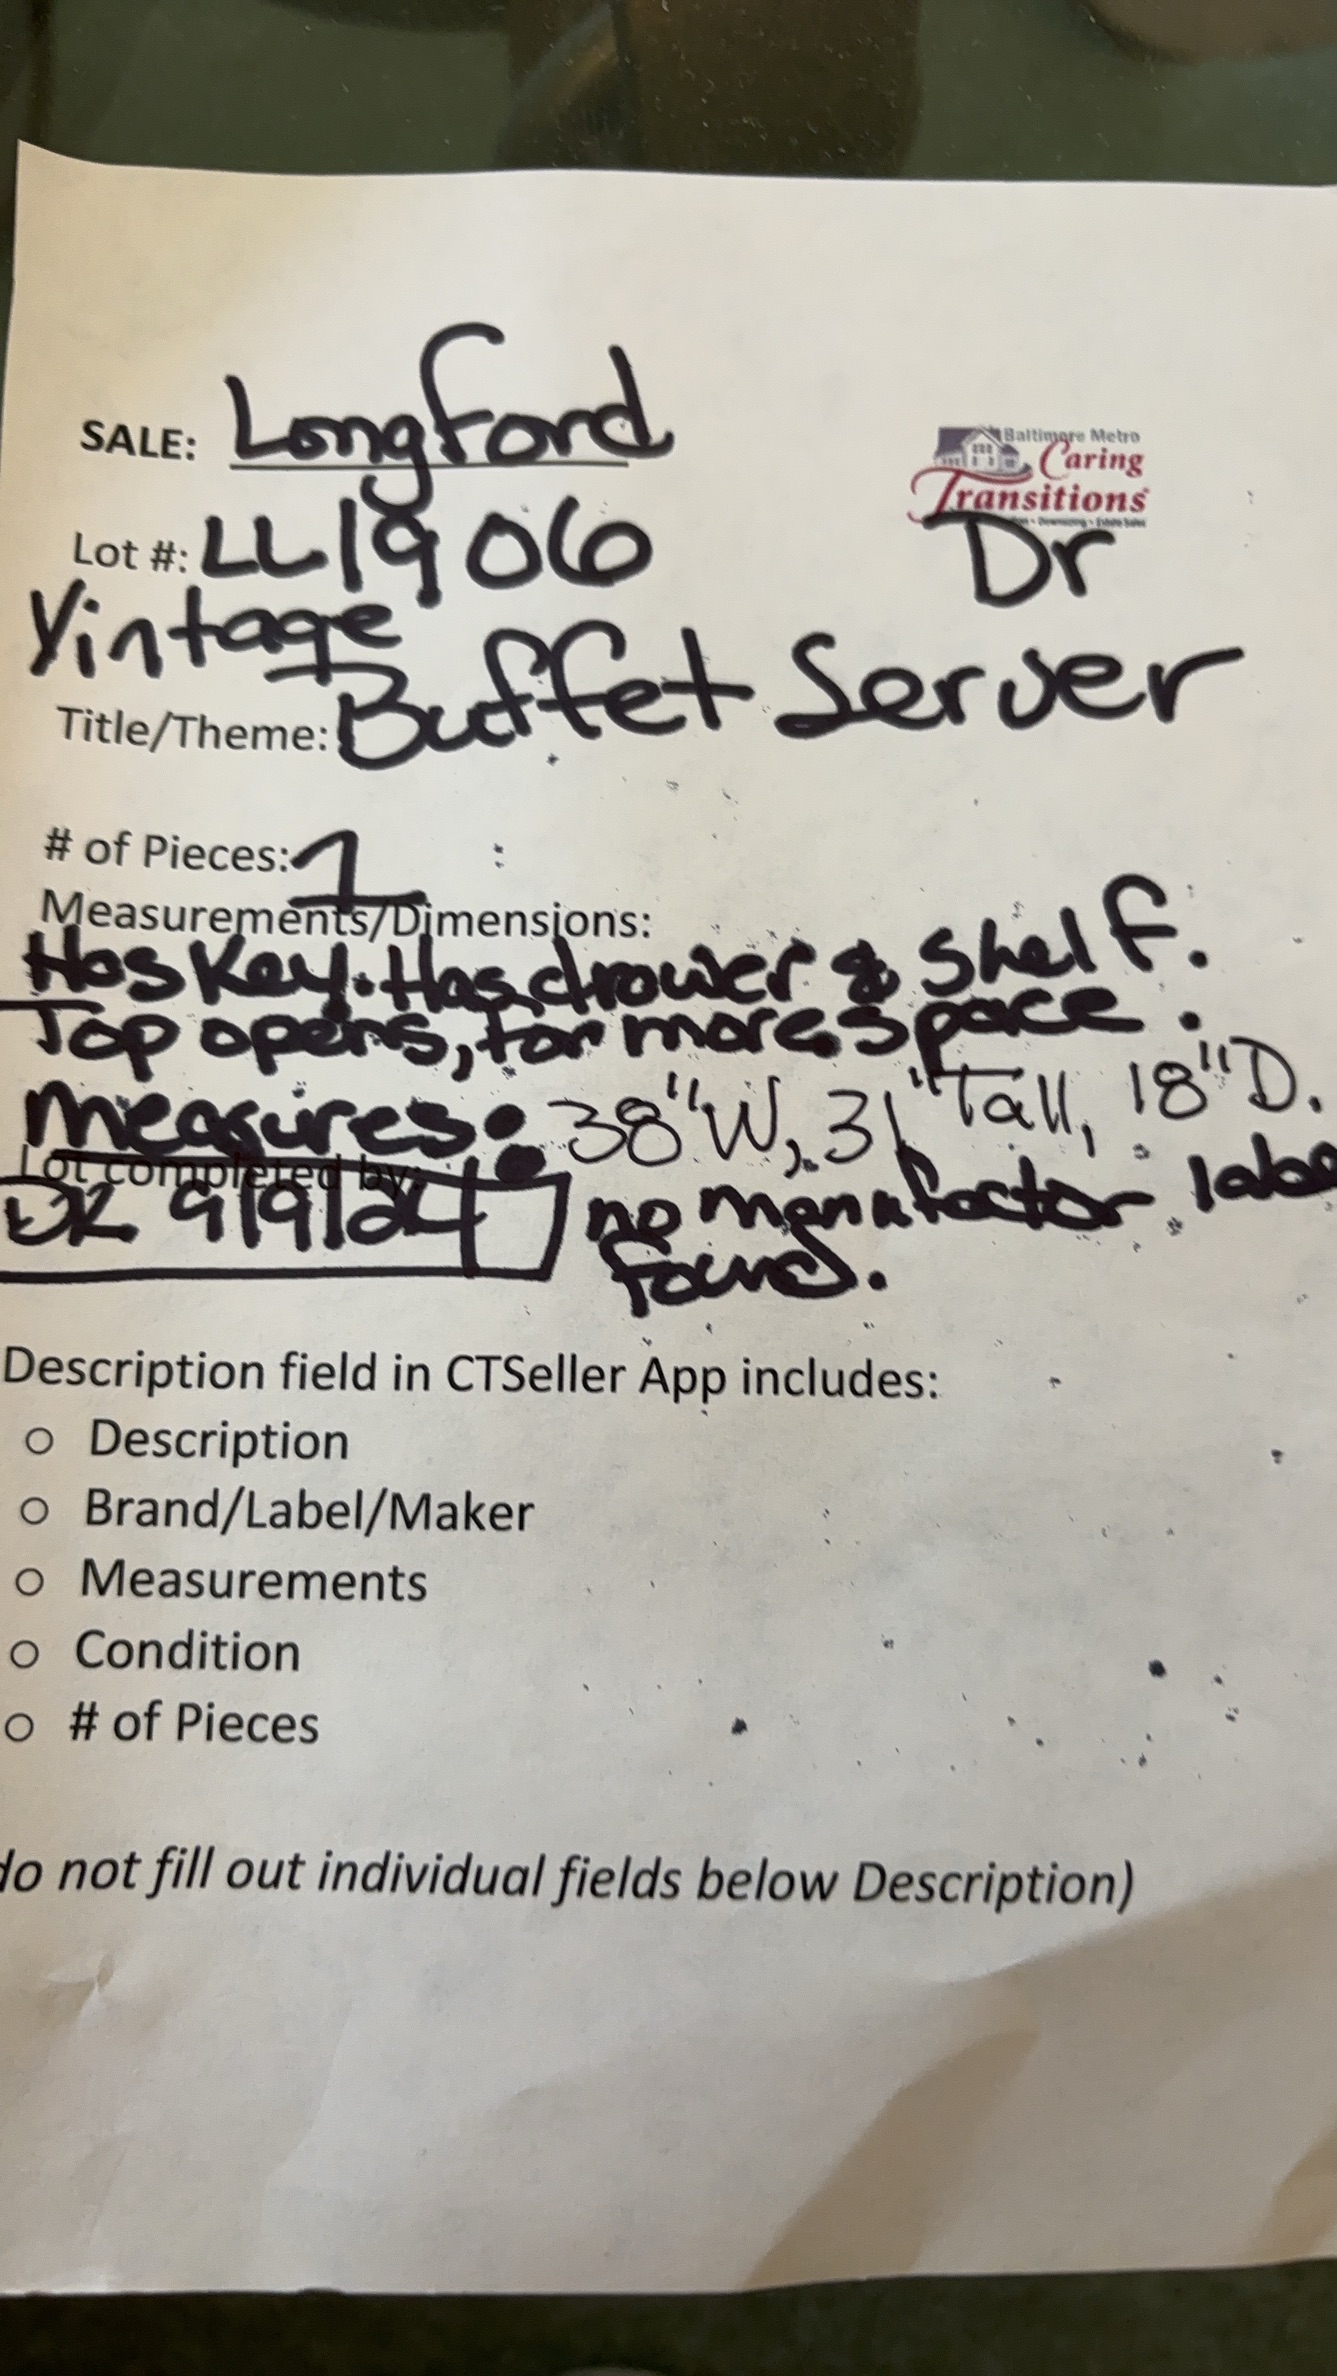 SALE: Longford
Baltimore Metro
Caring
Transitions
Lot #: LL1906
Dr
Vintage
Title/Theme: Buffet Server
# of Pieces: 1
Measurements/Dimensions:
Has Key. Has drawer & Shelf.
Top opens, for more space.
Measures: 38"W, 31"Tall, 18"D.
Lot completed by:
DR 9/9/24
no manufactor labe
found.
Description field in CTSeller App includes:
○ Description
○ Brand/Label/Maker
○ Measurements
○ Condition
○ # of Pieces
do not fill out individual fields below Description)